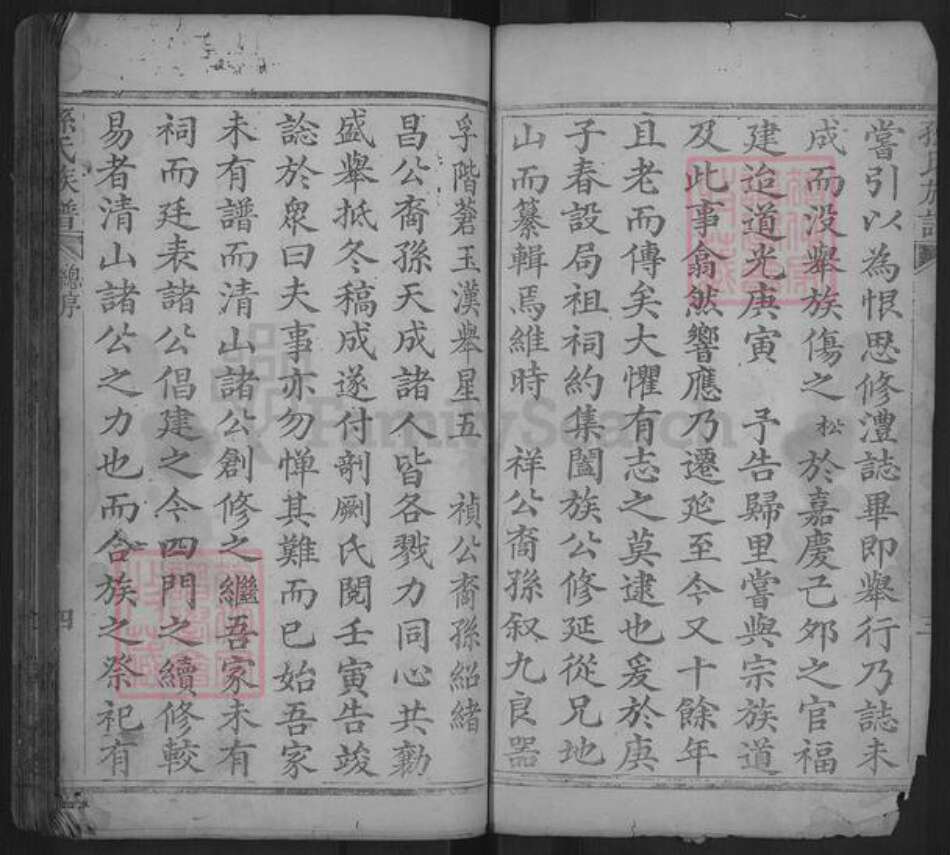 嘗引以為恨思修澧誌畢即舉行乃誌未
成而没舉族傷之松於嘉慶己夘之官福
建迨道光庚寅 予告歸里嘗與宗族道
及此事翕然響應乃遷延至今又十餘年
且老而傳矣大懼有志之莫逮也爰於庚
子春設局祖祠約集闔族公修延從兄地
山而纂輯焉維時 祥公裔孫叙九良器
孚階蒼玉漢舉星五 禎公裔孫紹緒
昌公裔孫天成諸人皆各戮力同心共勷
盛舉抵冬稿成遂付剞劂氏閱壬寅告竣
諗於眾曰夫事亦勿憚其難而已始吾家
未有譜而清山諸公創修之繼吾家未有
祠而廷表諸公倡建之今四門之續修較
易者清山諸公之力也而合族之祭祀有
孫氏族譜 總序 四
FamilySearch